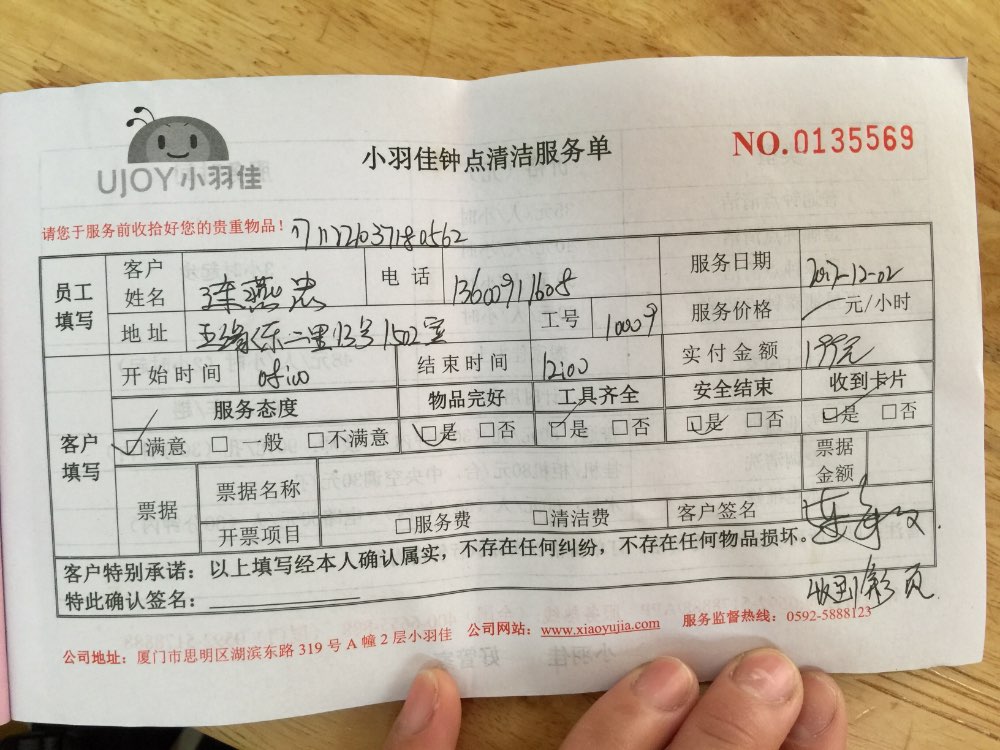 UJOY小羽佳
小羽佳钟点清洁服务单
NO.0135569
请您于服务前收拾好您的贵重物品！
员工填写
客户姓名
电话 13600911608
服务日期 2017-12-02
地址
工号 10009
服务价格 元/小时
开始时间 08:00
结束时间 12:00
实付金额
客户填写
服务态度 物品完好 工具齐全 安全结束 收到卡片
☑满意 □一般 □不满意 ☑是 □否 ☑是 □否 ☑是 □否 ☑是 □否
票据 票据名称 票据金额
开票项目 □服务费 □清洁费 客户签名
客户特别承诺：以上填写经本人确认属实，不存在任何纠纷，不存在任何物品损坏。
特此确认签名：
公司地址：厦门市思明区湖滨东路 319 号 A 幢 2 层小羽佳 公司网站：www.xiaoyujia.com 服务监督热线：0592-5888123